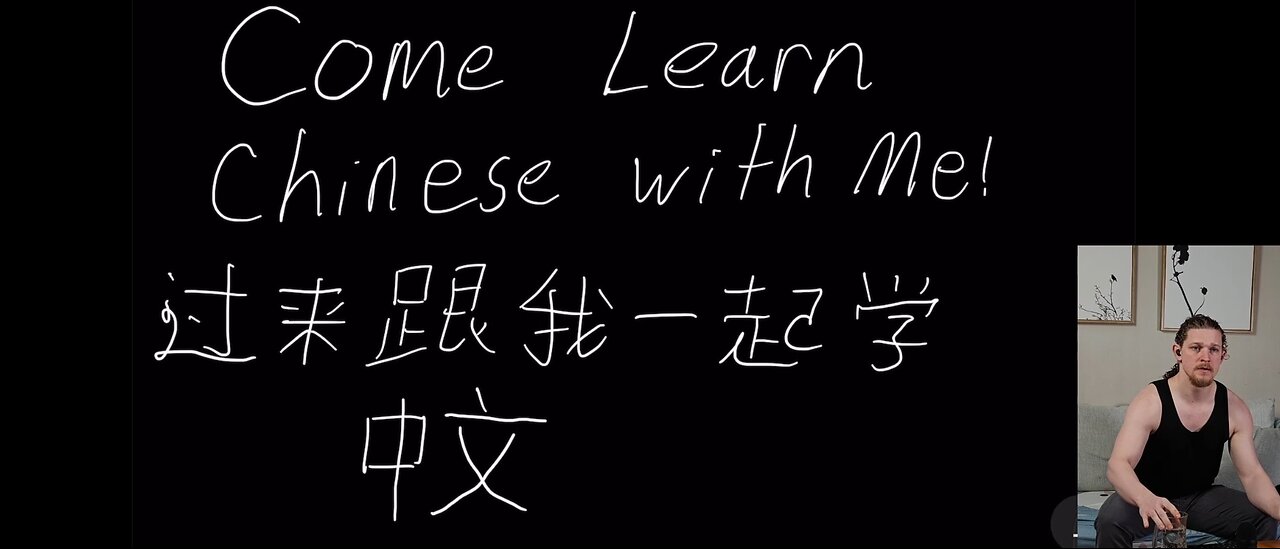 Come Learn
Chinese with Me!
过来跟我一起学
中文